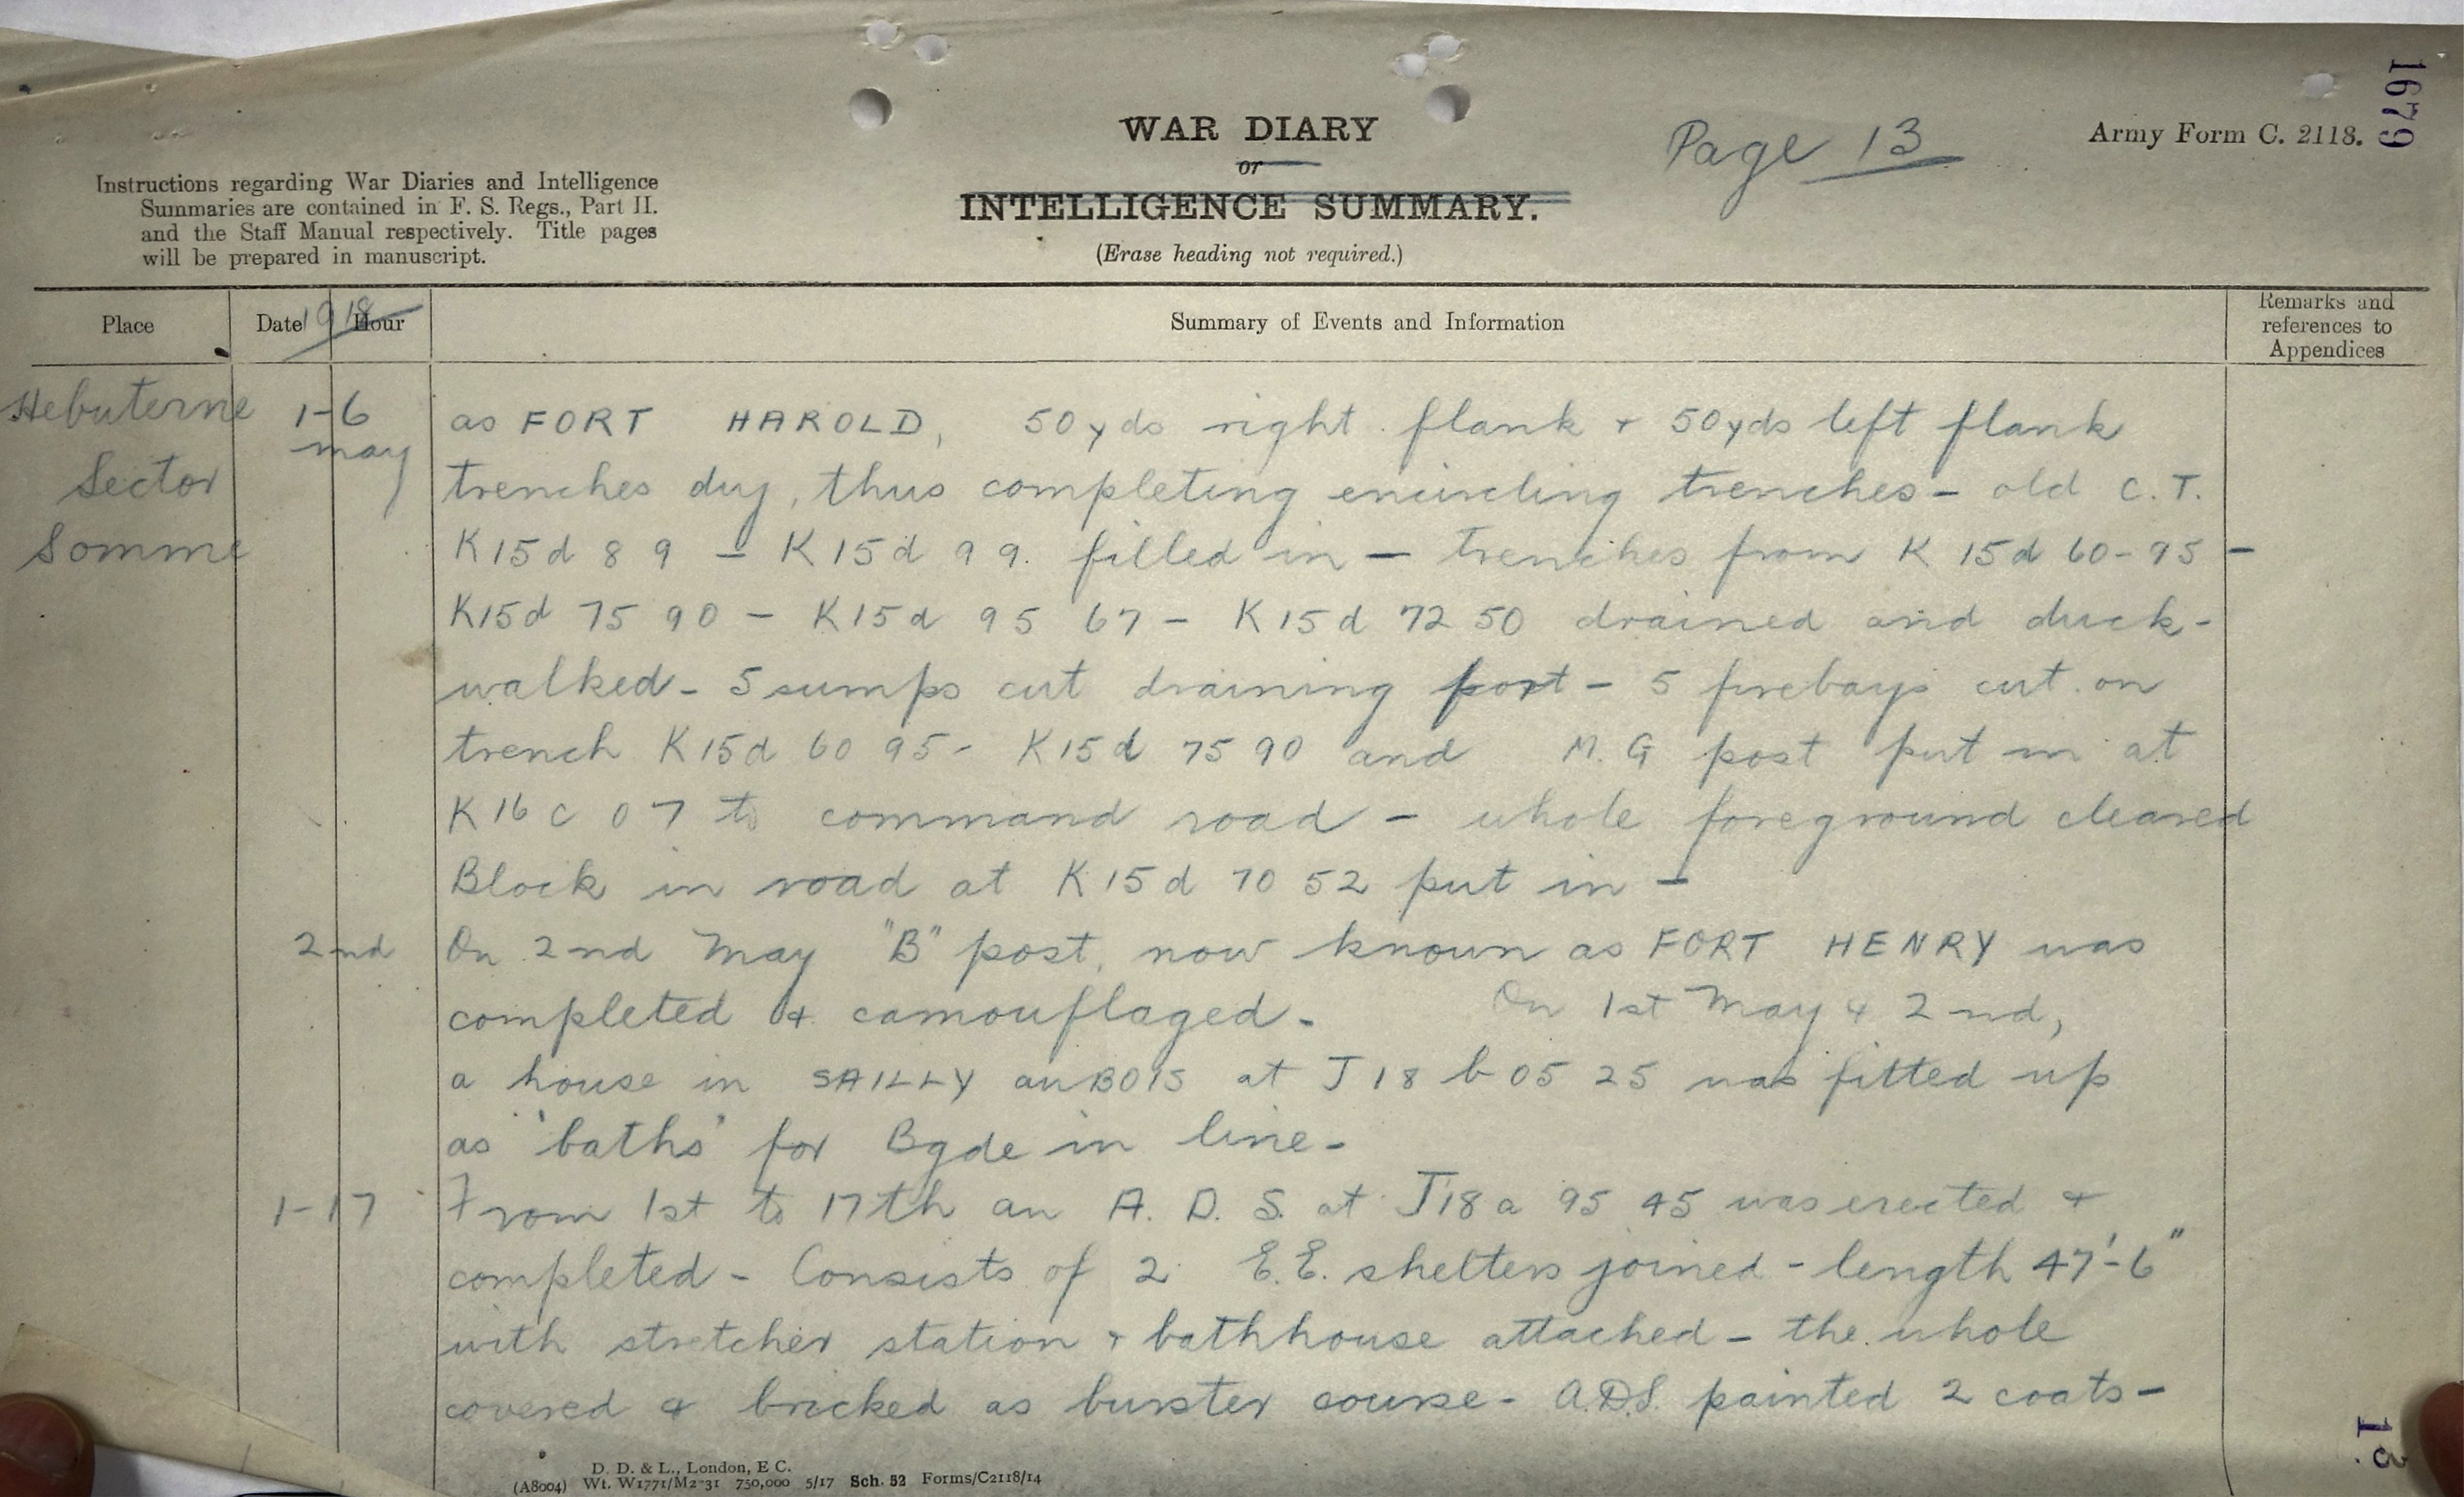 1679
WAR DIARY
or
INTELLIGENCE SUMMARY.
(Erase heading not required.)
Page 13
Army Form C. 2118.
Instructions regarding War Diaries and Intelligence
Summaries are contained in F. S. Regs., Part II.
and the Staff Manual respectively. Title pages
will be prepared in manuscript.
Place
Date 1918 Hour
Summary of Events and Information
Remarks and
references to
Appendices
Hebuterne 1-6 as FORT HAROLD, 50yds right flank + 50yds left flank
may
Sector trenches dug, thus completing encircling trenches - old C.T.
Somme K15d 8 9 - K15d 9 9. filled in - trenches from K 15d 60-95 -
K15d 75 90 - K15d 95 67 - K15d 72 50 drained and duck-
walked - 5 sumps cut draining port - 5 firebays cut on
trench K15d 60 95 - K15d 75 90 and M.G post put in at
K16 c 0 7 to command road - whole foreground cleared
Block in road at K15d 70 52 put in -
2nd On 2nd May "B" post, now known as FORT HENRY was
completed & camouflaged - On 1st May & 2nd,
a house in SAILLY au BOIS at J18 b 05 25 was fitted up
as 'baths' for Bgde in line -
1-17 From 1st to 17th an A.D.S. at J18a 95 45 was erected +
completed - Consists of 2 E.E. shelters joined - length 47'-6"
with stretcher station + bathhouse attached - the whole
covered & bricked as burster course - A.D.S. painted 2 coats -
D. D. & L., London, E C.
(A8004) Wt. W1771/M2-31 750,000 5/17 Sch. 52 Forms/C2118/14
13